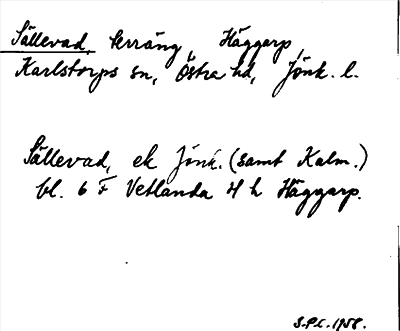 Sällevad, terräng, Häggarp,
Karlstorps sn, Östra hd, Jönk. l.
Sällevad, ek Jönk. (samt Kalm.)
bl. 6 F Vetlanda 4 h Häggarp.
S.P.C. 1958.